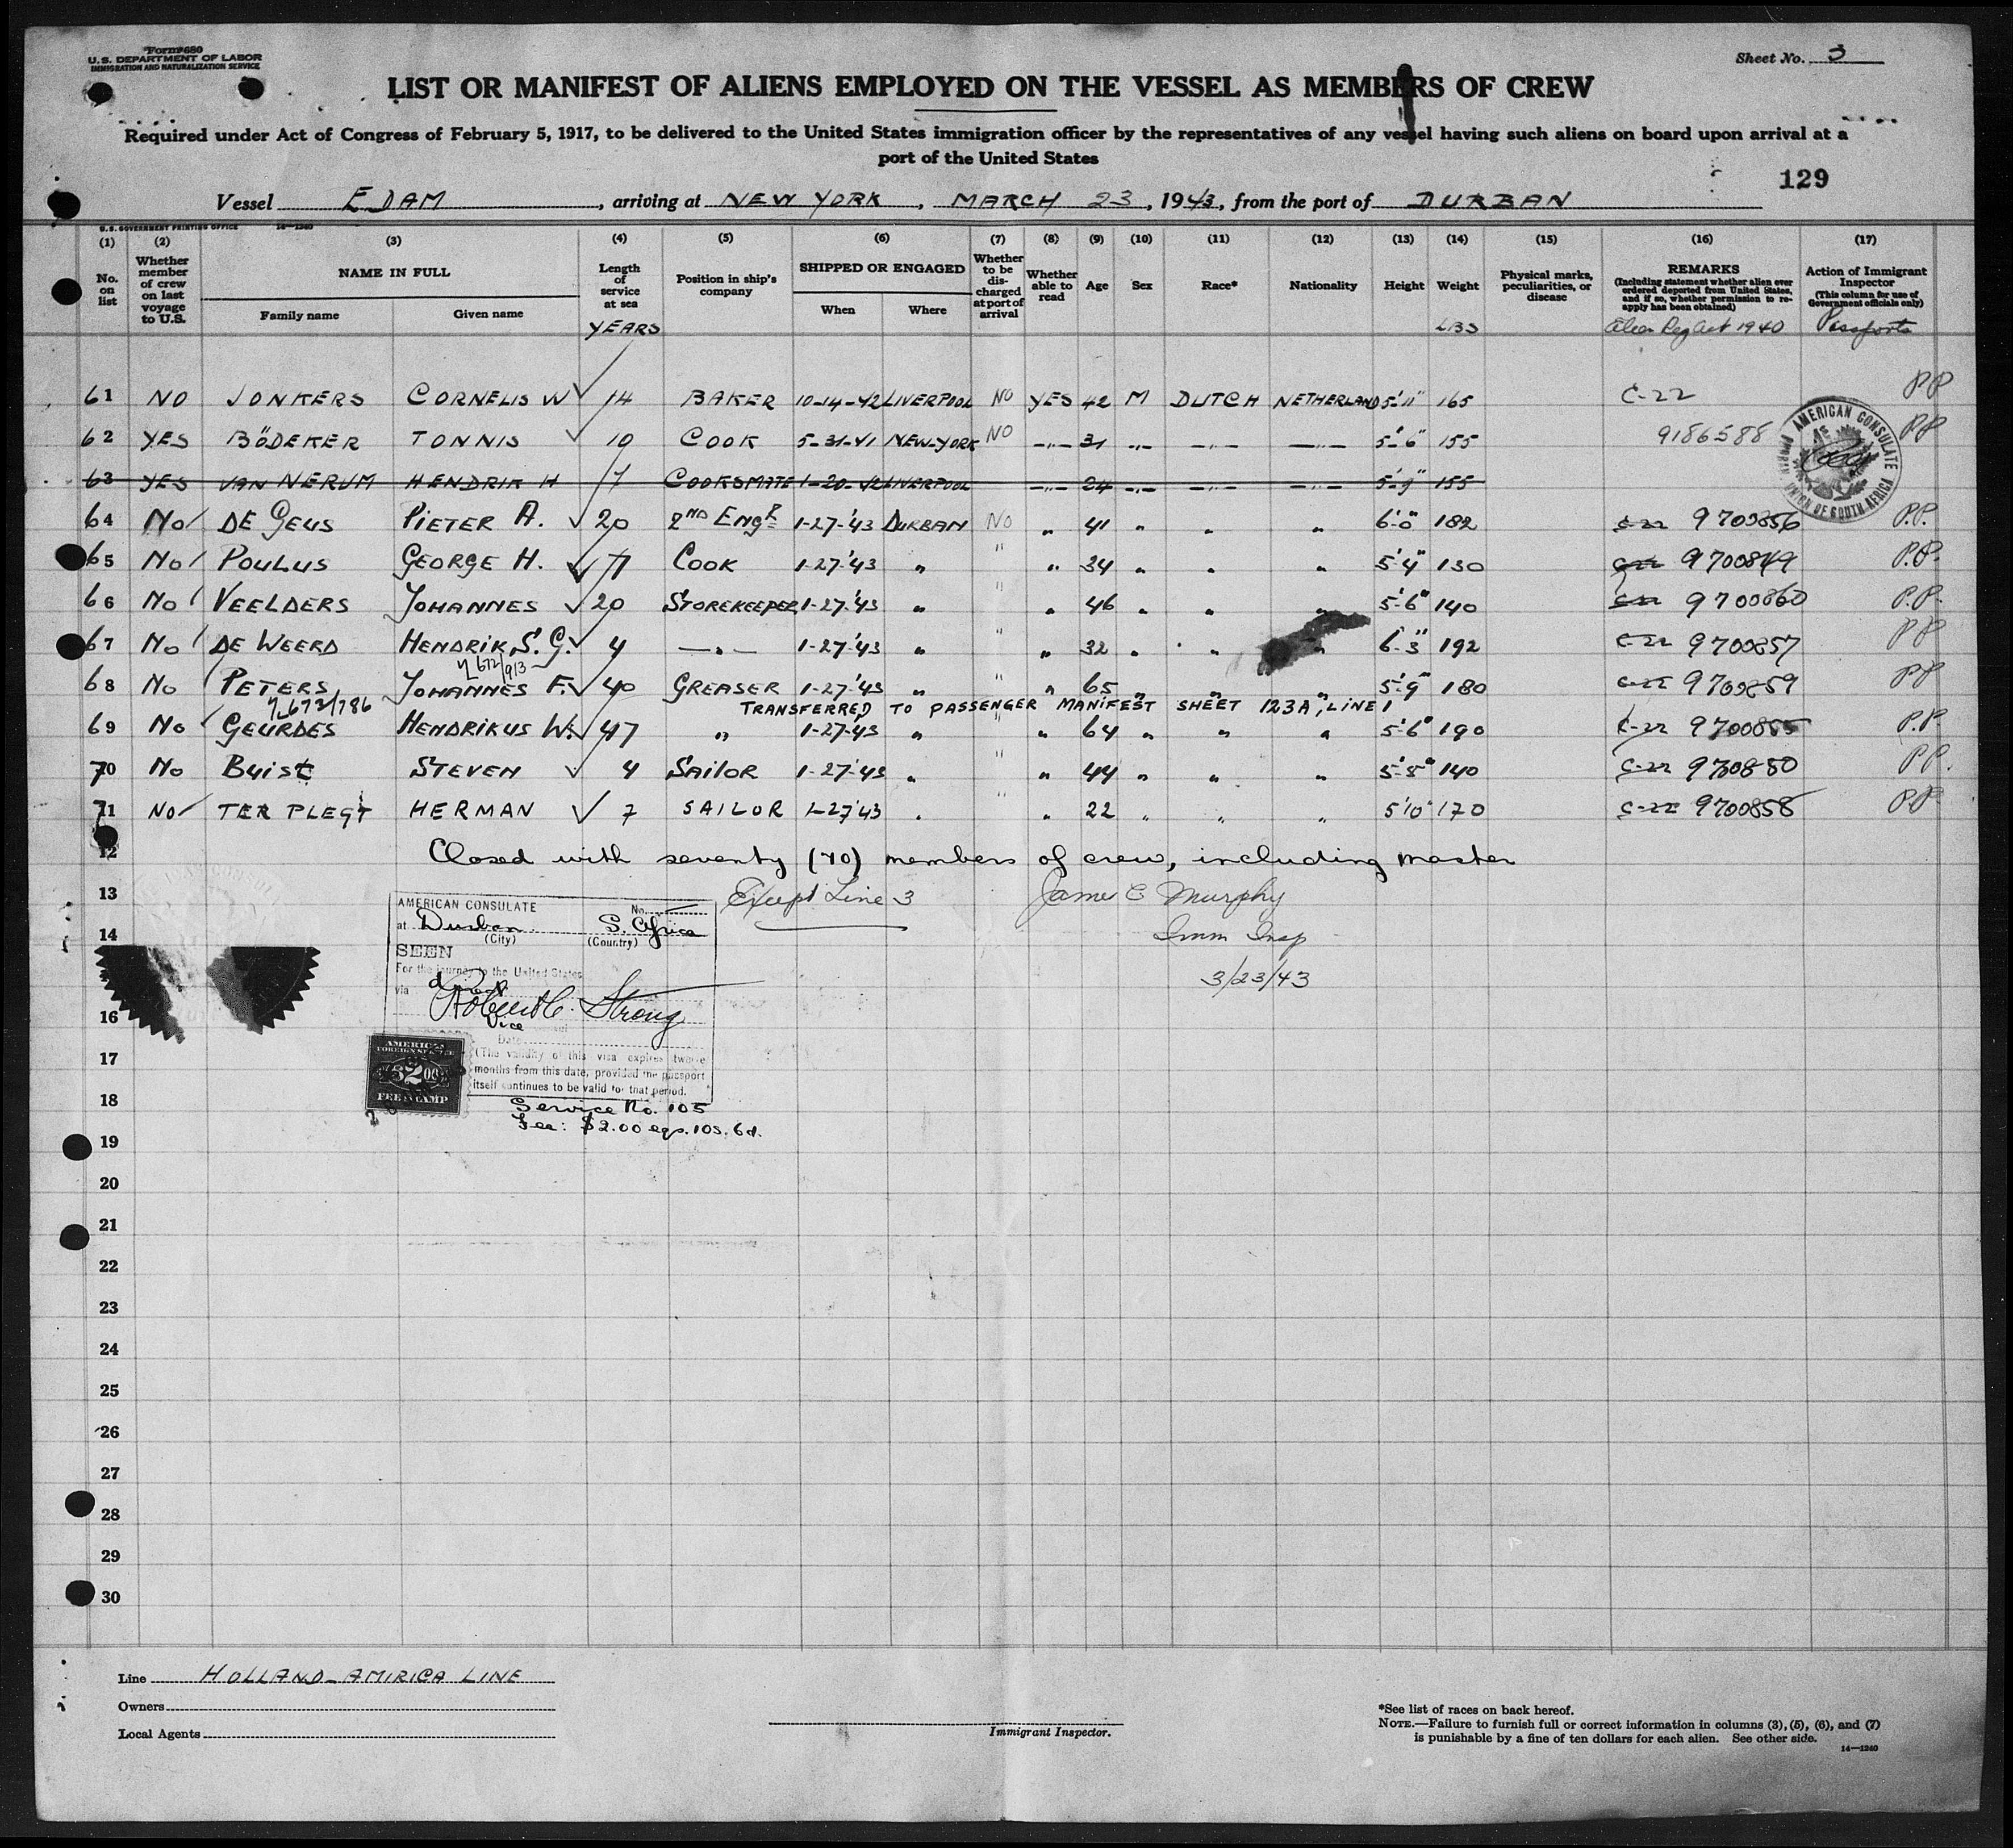 Form 680
U.S. DEPARTMENT OF LABOR
IMMIGRATION AND NATURALIZATION SERVICE
Sheet No. 3
LIST OR MANIFEST OF ALIENS EMPLOYED ON THE VESSEL AS MEMBERS OF CREW
Required under Act of Congress of February 5, 1917, to be delivered to the United States immigration officer by the representatives of any vessel having such aliens on board upon arrival at a
port of the United States
129
Vessel EDAM, arriving at NEW YORK, MARCH 23, 1943, from the port of DURBAN
U.S. GOVERNMENT PRINTING OFFICE 14—1240
(1) (2) (3) (4) (5) (6) (7) (8) (9) (10) (11) (12) (13) (14) (15) (16) (17)
No. on list
Whether member of crew on last voyage to U.S.
NAME IN FULL
Family name Given name
Length of service at sea
YEARS
Position in ship's company
SHIPPED OR ENGAGED
When Where
Whether to be discharged at port of arrival
Whether able to read
Age Sex Race* Nationality Height Weight
LBS
Physical marks, peculiarities, or disease
REMARKS
(Including statement whether alien ever ordered deported from United States, and if so, whether permission to reapply has been obtained)
Alien Reg Act 1940
Action of Immigrant Inspector
(This column for use of Government officials only)
Passports
61 NO JONKERS CORNELIS W 14 BAKER 10-14-42 LIVERPOOL NO YES 42 M DUTCH NETHERLAND 5'-11" 165 C-22 PP
62 YES BÖDEKER TONNIS 10 COOK 5-31-41 NEW-YORK NO —"— 31 —"— —"— —"— 5'-6" 155 9186588 PP
63 YES VAN NERUM HENDRIK H 7 COOKSMATE 1-20-42 LIVERPOOL —"— 24 —"— —"— —"— 5'-9" 155
64 No DE GEUS PIETER A. 20 2ND ENGR 1-27-'43 DURBAN NO " 41 " " " 6'-0" 182 C-22 9700856 P.P.
65 No POULUS GEORGE H. COOK 1-27-'43 " " " 34 " " " 5'-4" 130 C-22 9700849 P.P.
66 No VEELDERS JOHANNES 20 STOREKEEPER 1-27-'43 " " " 46 " " " 5'-6" 140 C-22 9700860 P.P.
67 No DE WEERD HENDRIK S. G. 4 —"— 1-27-'43 " " " 32 " " " 6'-3" 192 C-22 9700857 PP
4672/913
68 No PETERS JOHANNES F. 40 GREASER 1-27-'43 " " " 65 " " " 5'-9" 180 C-22 9700859 PP
4672/786 TRANSFERRED TO PASSENGER MANIFEST SHEET 123A, LINE 1
69 No GEURDES HENDRIKUS W. 47 " 1-27-'43 " " " 64 " " " 5'-6" 190 C-22 9700855 P.P.
70 No BUIST STEVEN 4 SAILOR 1-27-'43 " " " 44 " " " 5'-8" 140 C-22 9700850 PP.
71 No TER PLEGT HERMAN 7 SAILOR 1-27'43 " " " 22 " " " 5'10" 170 C-22 9700858 PP
AMERICAN CONSULATE
DURBAN, UNION OF SOUTH AFRICA
12 Closed with seventy (70) members of crew, including master
13 Except Line 3 James C Murphy
14 Imm Insp
3/23/43
AMERICAN CONSULATE
No.
at Durban S. Africa
(City) (Country)
SEEN
For the journey to the United States
via direct
Robert C. Strong
Vice
Date
(The validity of this visa expires twelve
months from this date, provided the passport
itself continues to be valid for that period.
AMERICAN
FOREIGN SERVICE
$2.00
FEE STAMP
Service No. 105
Fee: $2.00 eqv. 10s. 6d.
16
17
18
19
20
21
22
23
24
25
26
27
28
29
30
Line HOLLAND-AMIRICA LINE
Owners
Local Agents
Immigrant Inspector.
*See list of races on back hereof.
NOTE.—Failure to furnish full or correct information in columns (3), (5), (6), and (7)
is punishable by a fine of ten dollars for each alien. See other side.
14—1240